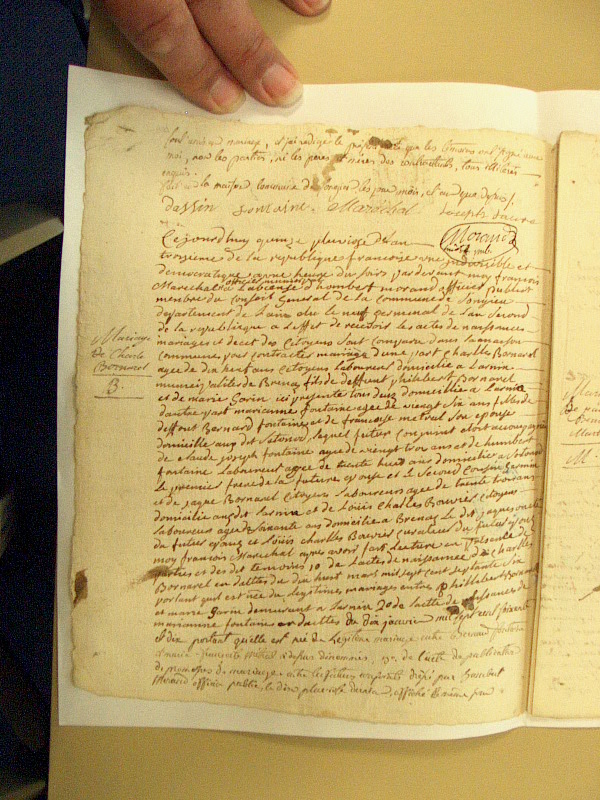 mariage, et j'ai rédigé le présent acte que les témoins ont signé avec
moi, non les parties, ni les pères et mères des contractants, tous illitérés
enquis.
la maison commune de Songieu les jour, mois, et an que dessus.
Dassin fontaine. Maréchal Joseph
Morand
Cejourdhuy quinze pluviose Lan
troisieme de la republique francoise une indivisible et
democratique a une heure du soirs par devant moy francois
Marechal a Labcense d'humbert morand officier publict
officier municipal
membre du Conseil General de la Commune de Songieu
departement de Lain elu le neuf germinal de Lan Second
de la republique a Leffet de recevoir les actes de naissances
mariages et deces des Citoyens sont Comparu dans la maison
Commune pour contracter mariage d'une part Charlles Bornarel
agee de dix huit ans Citoyens Laboureur domicilie a Larnin
municipalites de Brenaz fils de deffunt philibert Bornarel
et de marie Garin icy presente tous deux domicillie a Larnin
dautre part marianne fontaine agee de vingt six ans filles de
deffunt Bernard fontaine et de francoise metral son epouse
domicilie audit Sotonod, lequel futur Conjoint etoit accompagnes
de claude joseph fontaine agee de vingt trois ans et de humbert
fontaine Laboureur agee de trente huit ans domicilie a Sotonod
le premier frere de la future epouse et le Second Cousin Germain
et de jaque Bornarel Citoyen Laboureur agee de trente trois ans
domicilie audit Larnin et de Loüis Charlles Bouvier Citoyens
Laboureur agee de Soixante ans domicilie a Brenaz Le dit jaques oncle
du futur epoux et Loüis Charlles Bouvier curateur du futur epoux
moy francois Marechal apres avoir fait Lecture en presence des
parties et des dit temoins 1o de Lacte de naissance de Charlles
Bornarel en dattes du dix huit mars mil sept cent septante six
portant quil est née du Legitime mariages entre philibert Bornarel
et marie Garin demeurant a Larnin 2o de Lacte de naissances de
marianne fontaine en dattes du dix janvier mil sept cent soixante
et dix portant qu'elle est née de Legitime mariage entre Bernard fontaine
et marie françoise Métral 3o. de l'acte de publication
de promesses de mariage entre les futurs conjoints dressé par humbert
Morand officier public, le dix pluviose dernier, affiché le même jour
Mariage
de Charle
Bornarel
B.
M.